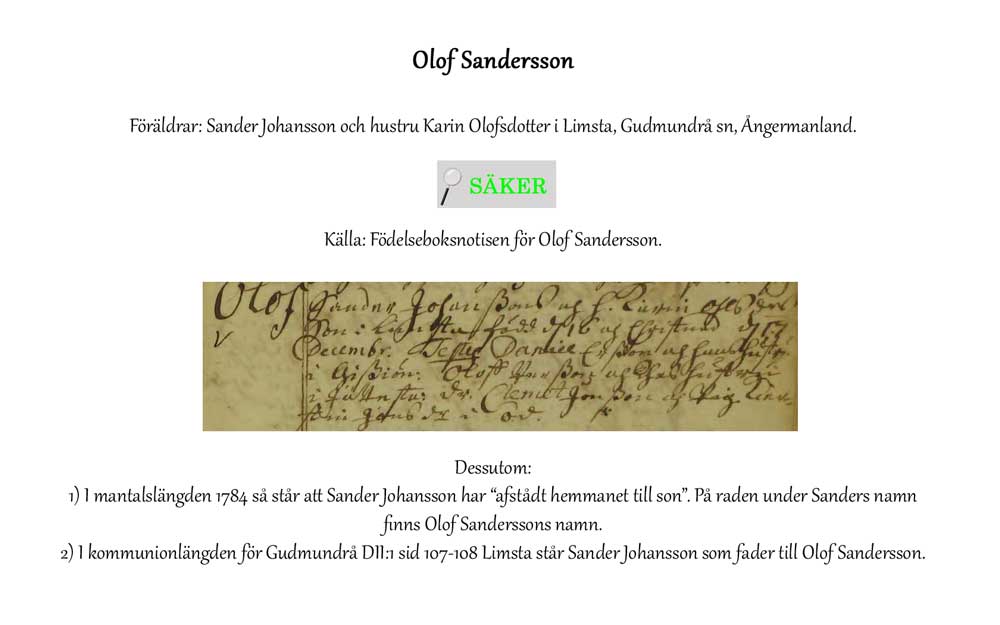 Olof Sandersson
Föräldrar: Sander Johansson och hustru Karin Olofsdotter i Limsta, Gudmundrå sn, Ångermanland.
SÄKER
Källa: Födelseboksnotisen för Olof Sandersson.
Olof Sander Johanßons och h. Karin
Son i Limsta född d 16 och Christnad d 17
Decembr. Testes Daniel
i Oloff
i
i
Dessutom:
1) I mantalslängden 1784 så står att Sander Johansson har “afstådt hemmanet till son”. På raden under Sanders namn
finns Olof Sanderssons namn.
2) I kommunionlängden för Gudmundrå DII:1 sid 107-108 Limsta står Sander Johansson som fader till Olof Sandersson.